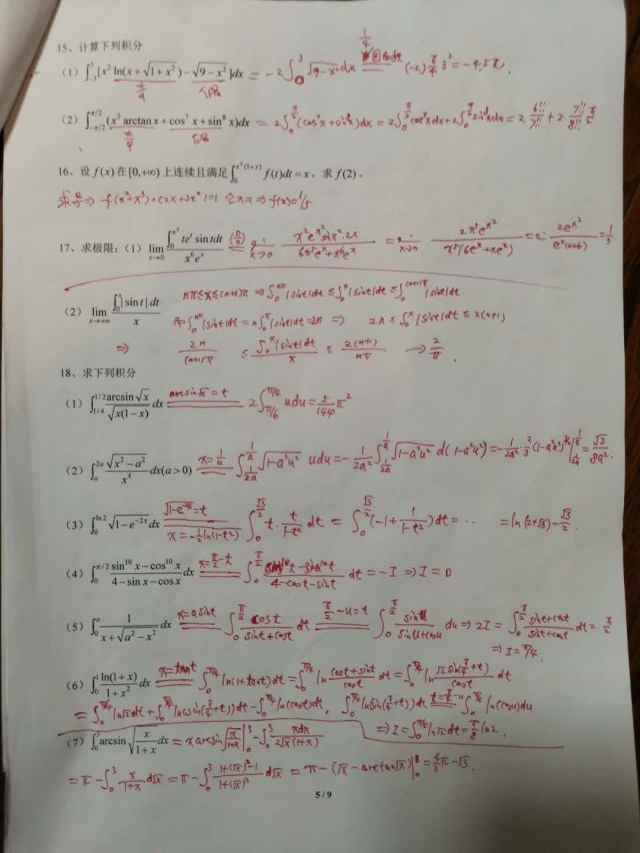 15、计算下列积分
(1) ∫₋₃³[x² ln(x+√(1+x²))−√(9−x²)]dx = −2∫₀³√(9−x²)dx = (−2)·π/4·3² = −4.5π.
奇 偶
(2) ∫₋π/₂^π/²(x² arctan x + cos⁷ x + sin⁸ x)dx = 2∫₀^π/²(cos⁷x+sin⁸x)dx = 2∫₀^π/²cos⁷xdx+2∫₀^π/²sin⁸xdx = 2·6!!/7!! + 2·7!!/8!!·π/2
奇 偶
16、设 f(x) 在[0,+∞) 上连续且满足∫₀^x²(1+x) f(t)dt = x，求 f(2)。
求导⇒ f(x²+x³)·(2x+3x²)=1 ⇒ f(2)=1/5
17、求极限：(1) lim x→0 ∫₀^x² te^t sin tdt / x⁶e^x (0/0) = lim x→0 x²e^x² sin x²·2x / 6x⁵e^x+x⁶e^x = lim x→0 2x⁵e^x² / x⁵(6e^x+xe^x) = 2e^x² / e^x(x+6) = 1/3
(2) lim x→+∞ ∫₀^x|sin t|dt / x nπ≤x≤(n+1)π ⇒∫₀^nπ|sint|dt≤∫₀^x|sint|dt≤∫₀^(n+1)π|sint|dt
∫₀^nπ|sint|dt = n∫₀^π|sint|dt=2n ⇒ 2n≤∫₀^x|sint|dt≤2(n+1)
⇒ 2n/(n+1)π ≤ ∫₀^x|sint|dt/x ≤ 2(n+1)/nπ → 2/π.
18、求下列积分
(1) ∫₁/₄^1/2 arcsin√x / √(x(1−x)) dx arcsin√x=t 2∫π/₆^π/4 udu = 5/144π²
(2) ∫₀^2a √(x²−a²) / x⁴ dx(a>0) x=1/u ∫1/2a^1/a √(1−a²u²) udu = −1/2a² ∫1/2a^1/a √(1−a²u²) d(1−a²u²) = −1/2a²·2/3(1−a²u²)^3/2|1/2a^1/a = √3/8a².
(3) ∫₀^ln2 √(1−e^−2x)dx √(1−e^−2x)=t x=−½ln(1−t²) ∫₀^√3/2 t·t/(1−t²) dt = ∫₀^√3/2(−1+1/(1−t²))dt = ·· =ln(2+√3)−√3/2.
(4) ∫₀^π/2 sin¹⁰ x−cos¹⁰ x / 4−sin x−cos x dx x=π/2−t ∫₀^π/2 cos¹⁰t−sin¹⁰t / 4−cost−sint dt =−I ⇒I=0
(5) ∫₀^a 1 / x+√(a²−x²) dx x=asint ∫₀^π/2 cost / sint+cost dt π/2−u=t ∫₀^π/2 sinu / sinu+cosu du ⇒2I=∫₀^π/2 sint+cost / sint+cost dt= π/2
⇒I=π/4.
(6) ∫₀¹ ln(1+x) / 1+x² dx x=tant ∫₀^π/4 ln(1+tant)dt=∫₀^π/4 ln cost+sint / cost dt=∫₀^π/4 ln √2sin(π/4+t) / cost dt
=∫₀^π/4 ln√2dt+∫₀^π/4 ln(sin(π/4+t))dt−∫₀^π/4 ln(cost)dt, ∫₀^π/4 ln(sin(π/4+t))dt t=π/4−u ∫₀^π/4 ln(cosu)du
⇒I=∫₀^π/4 ln√2dt=π/8 ln2.
(7) ∫₀³ arcsin√(x/(1+x)) dx =x arcsin√(x/(1+x))|₀³−∫₀³ xdx / 2√x(1+x)
=π−∫₀³ x/(1+x) d√x =π−∫₀³ 1+(√x)²−1 / 1+(√x)² d√x = π−(√x−arctan√x)|₀³=4/3π−√3.
5 / 9